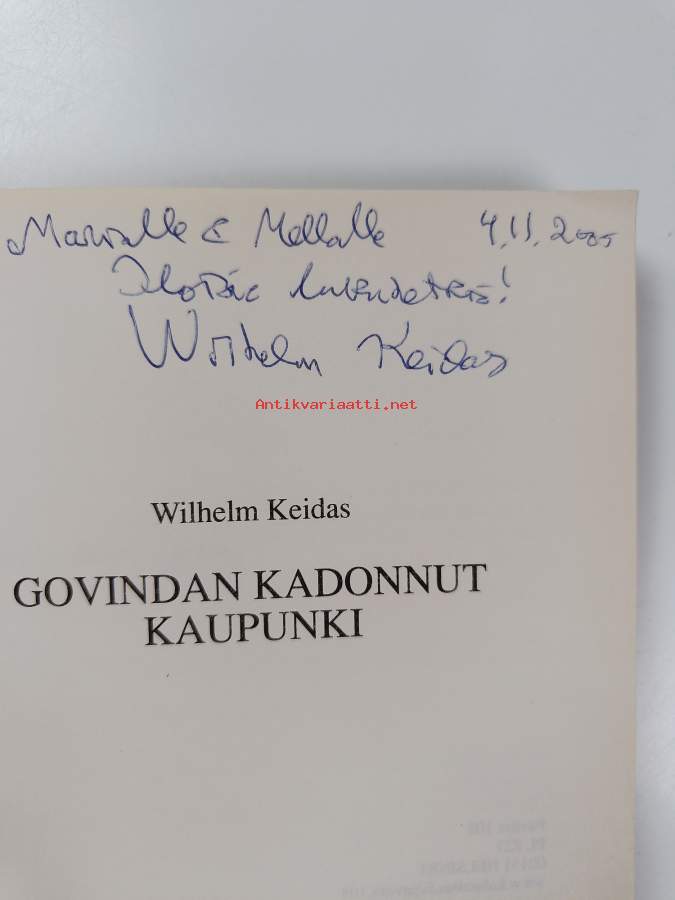 Marialle & Mellalle 4.11.2005
Iloisia lukuhetkiä!
Wilhelm Keidas
Antikvariaatti.net
Wilhelm Keidas
GOVINDAN KADONNUT
KAUPUNKI